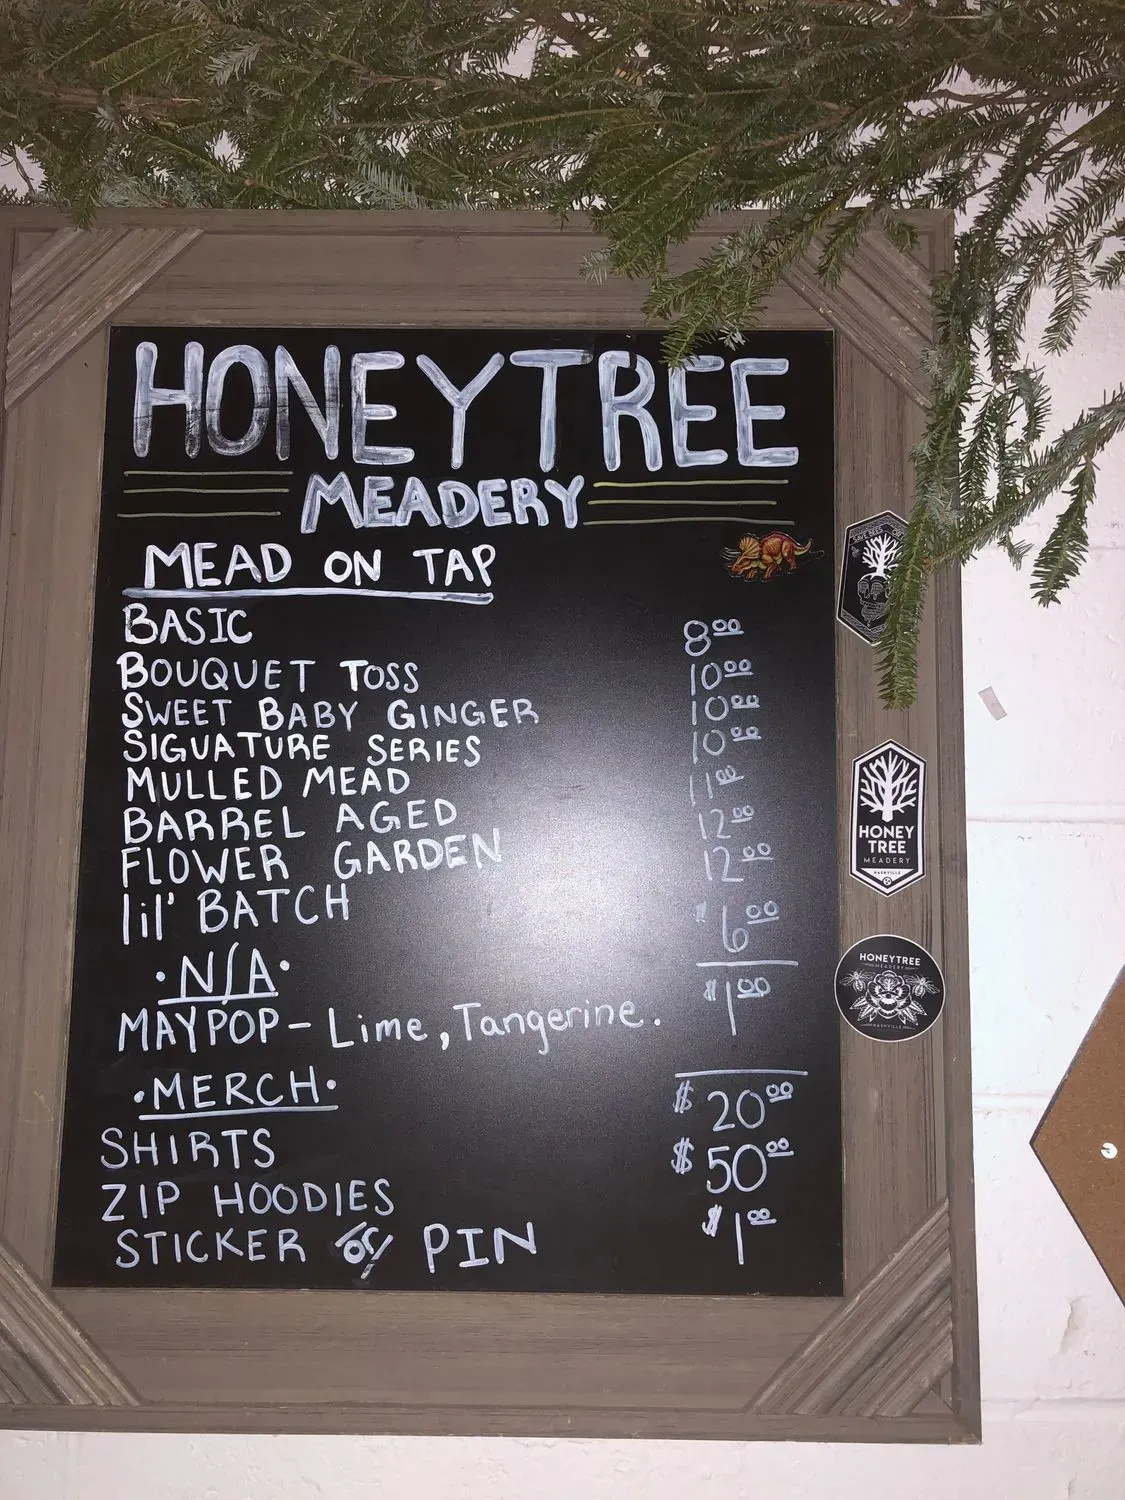 HONEYTREE
MEADERY
MEAD ON TAP
BASIC 8.00
BOUQUET TOSS 10.00
SWEET BABY GINGER 10.00
SIGUATURE SERIES 10.00
MULLED MEAD 11.00
BARREL AGED 12.00
FLOWER GARDEN 12.00
lil' BATCH $6.00
•N/A•
MAYPOP - Lime, Tangerine. $1.00
•MERCH•
SHIRTS $20.00
ZIP HOODIES $50.00
STICKER or PIN $1.00
HONEY
TREE
MEADERY
NASHVILLE
HONEYTREE
MEADERY
NASHVILLE